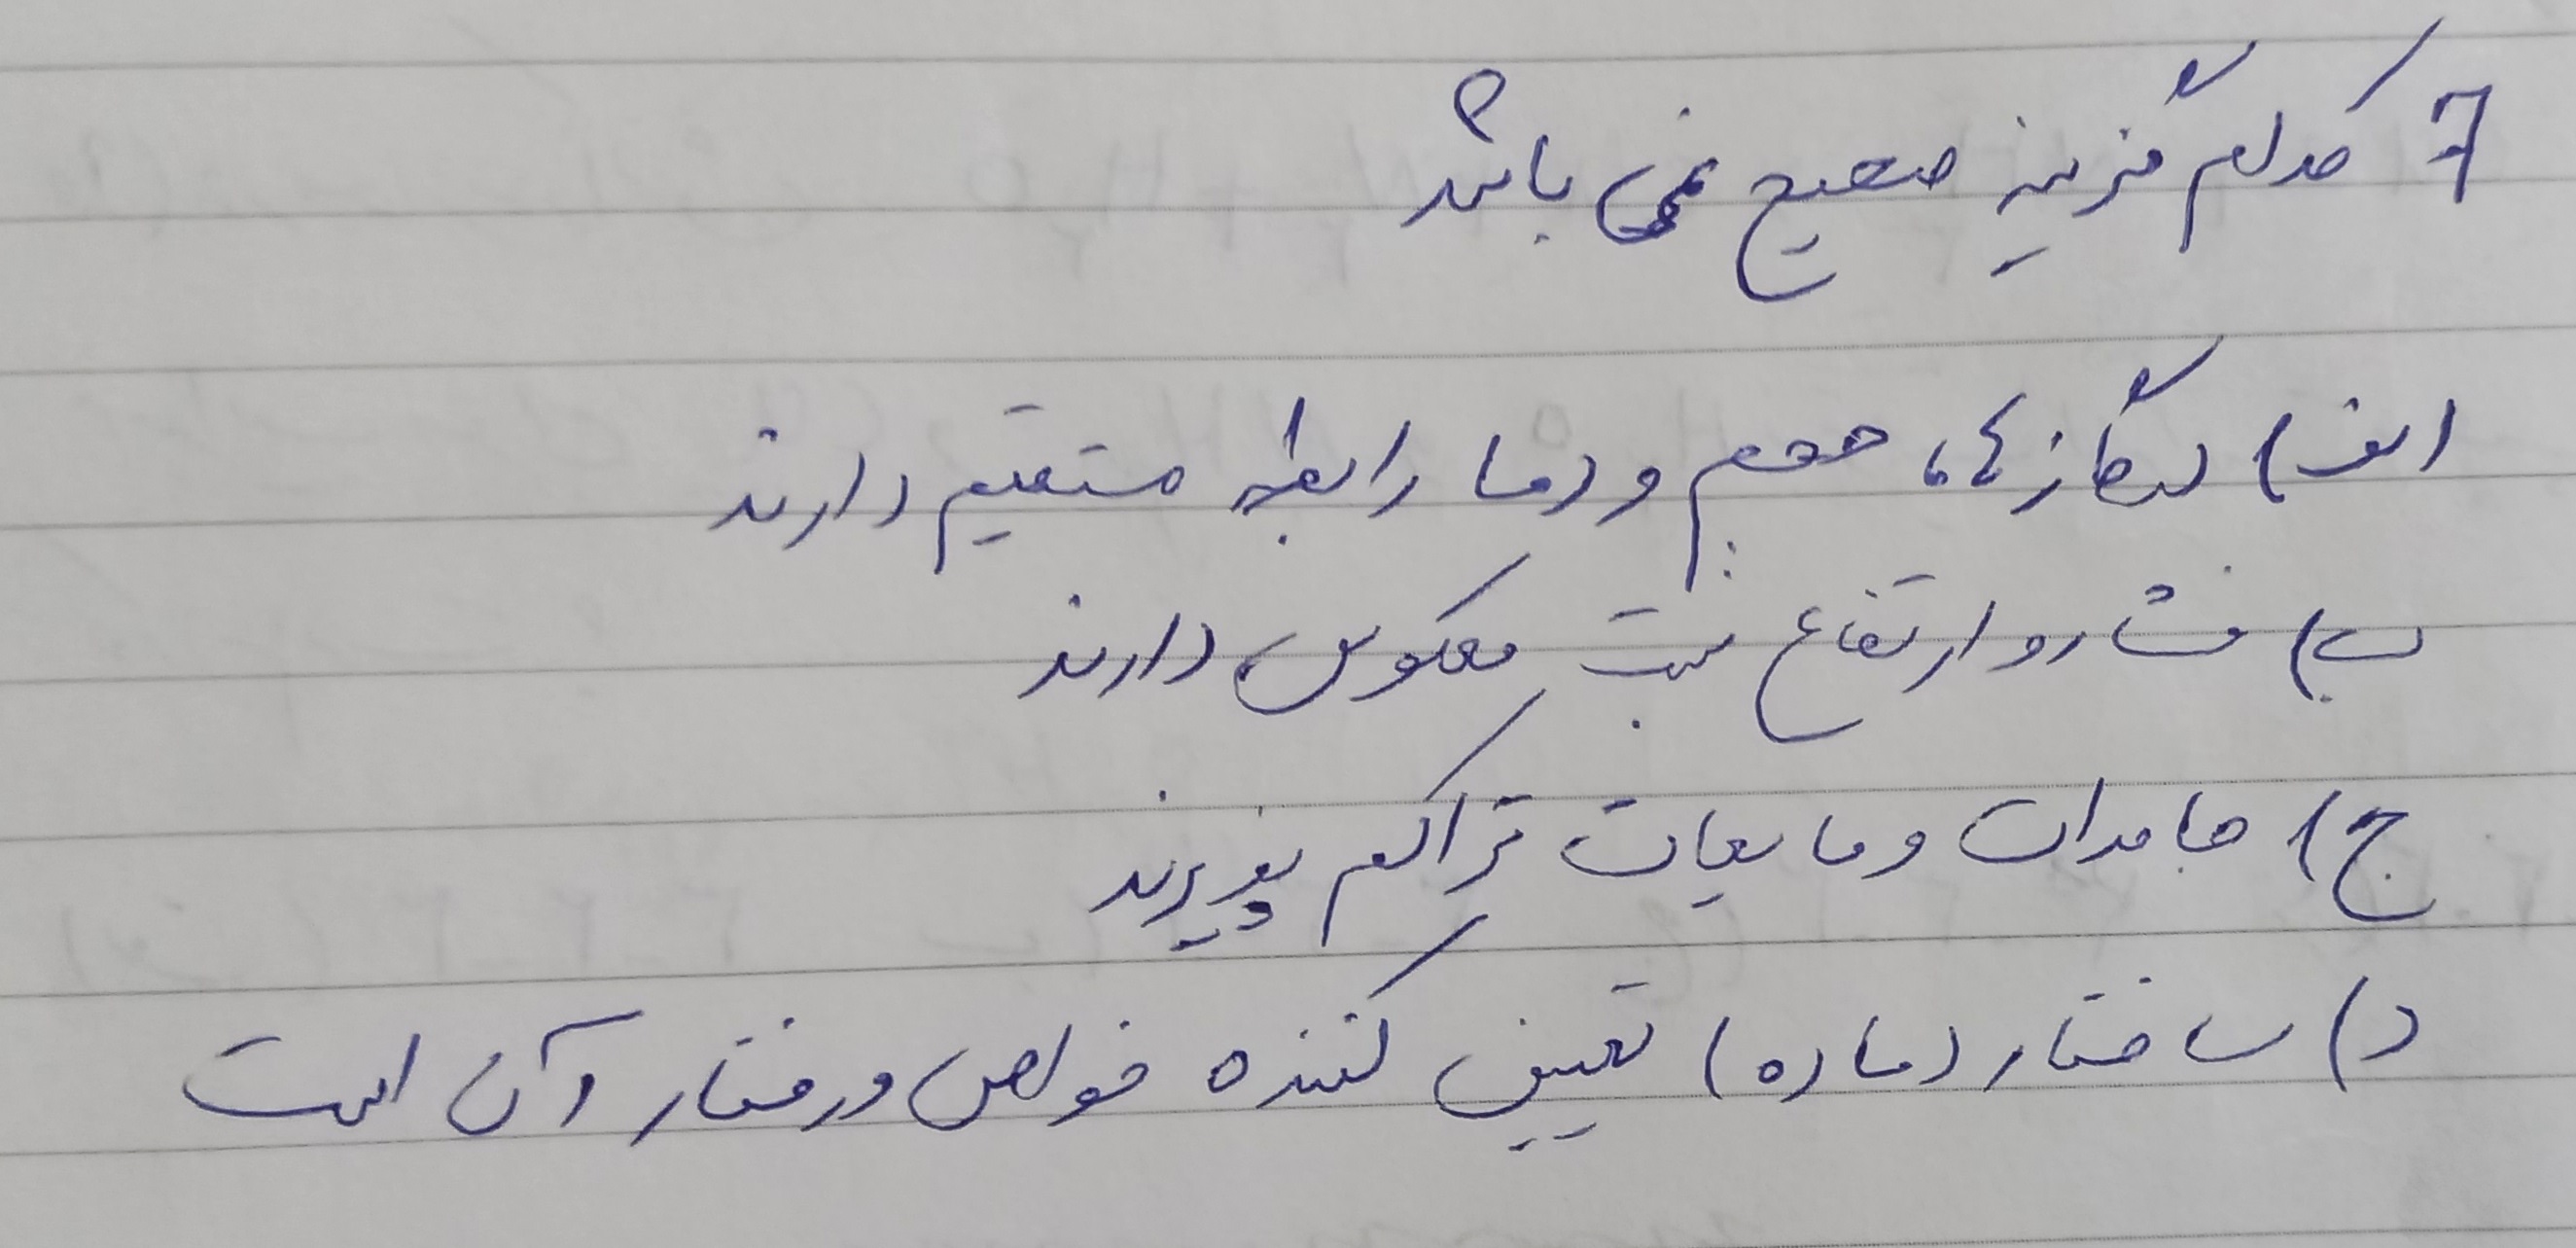 7 کدام گزینه صحیح نمی باشد؟
الف) در گازها، حجم و دما رابطه مستقیم دارند
ب) فشار و ارتفاع نسبت معکوس دارند
ج) جامدات و مایعات تراکم پذیرند
د) ساختار (ماده) تعیین کننده خواص و رفتار آن است